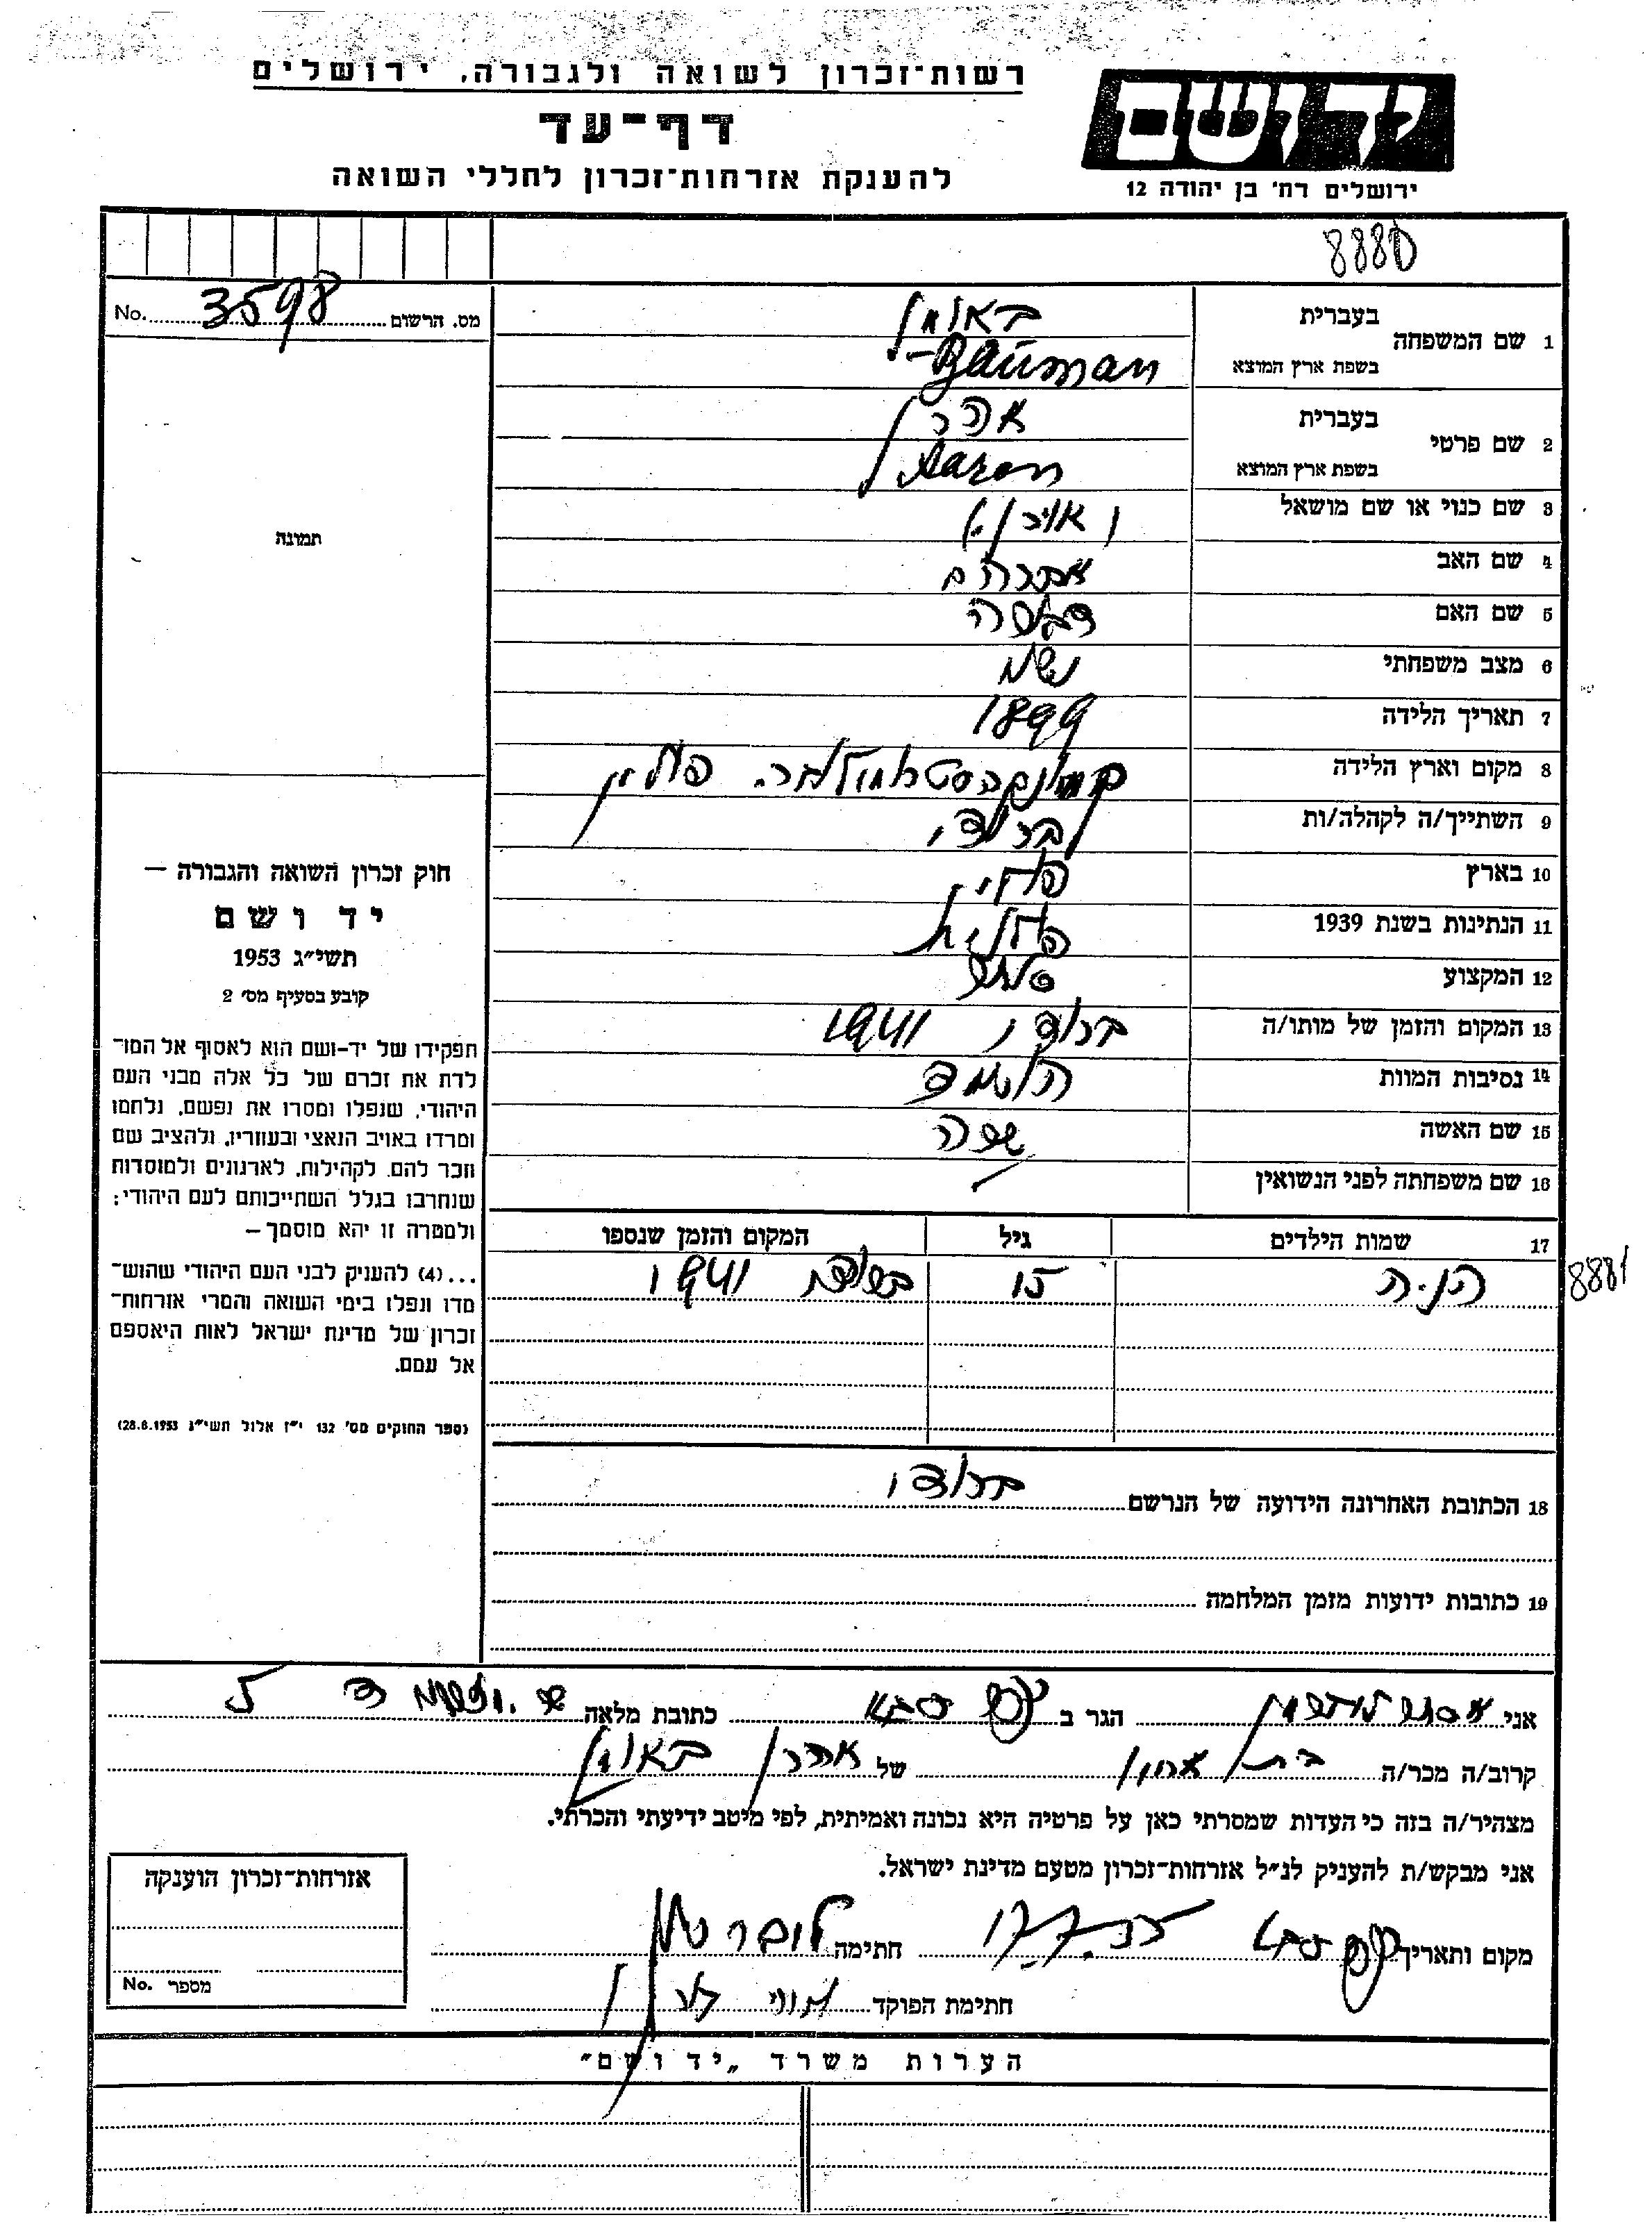 רשות־זכרון לשואה ולגבורה, ירושלים
דף־עד
להענקת אזרחות־זכרון לחללי השואה
יד ושם
ירושלים רח' בן יהודה 12
8880
מס. הרשום 3598 No.
1 שם המשפחה
בעברית באומן
בשפת ארץ המוצא Bauman
2 שם פרטי
בעברית אהרן
בשפת ארץ המוצא Aaron
3 שם כנוי או שם מושאל
4 שם האב אברהם
5 שם האם
6 מצב משפחתי נשוי
7 תאריך הלידה 1899
8 מקום וארץ הלידה פולין
9 השתייך/ה לקהלה/ות ברודי
10 בארץ פולין
11 הנתינות בשנת 1939 פולנית
12 המקצוע
13 המקום והזמן של מותו/ה ברודי 1941
14 נסיבות המוות הושמד
15 שם האשה שפרה
16 שם משפחתה לפני הנשואין
17 שמות הילדים גיל המקום והזמן שנספו
15 1941
8881
18 הכתובת האחרונה הידועה של הנרשם ברודי
19 כתובות ידועות מזמן המלחמה
תמונה
חוק זכרון השואה והגבורה —
יד ושם
תשי״ג 1953
קובע בסעיף מס' 2
תפקידו של יד-ושם הוא לאסוף אל המו־
לדת את זכרם של כל אלה מבני העם
היהודי, שנפלו ומסרו את נפשם, נלחמו
ומרדו באויב הנאצי ובעוזריו, ולהציב שם
וזכר להם, לקהילות, לארגונים ולמוסדות
שנחרבו בגלל השתייכותם לעם היהודי;
ולמטרה זו יהא מוסמך —
...(4) להעניק לבני העם היהודי שהוש־
מדו ונפלו בימי השואה והמרי אזרחות־
זכרון של מדינת ישראל לאות היאספם
אל עמם.
(ספר החוקים מס' 132 י״ז אלול תשי״ג 28.8.1953)
אני הגר ב כפר סבא כתובת מלאה 5
קרוב/ה מכר/ה של אהרן באומן
מצהיר/ה בזה כי העדות שמסרתי כאן על פרטיה היא נכונה ואמיתית, לפי מיטב ידיעתי והכרתי.
אני מבקש/ת להעניק לנ״ל אזרחות־זכרון מטעם מדינת ישראל.
מקום ותאריך כפר סבא חתימה
חתימת הפוקד
אזרחות־זכרון הוענקה
מספר No.
הערות משרד „יד ושם״